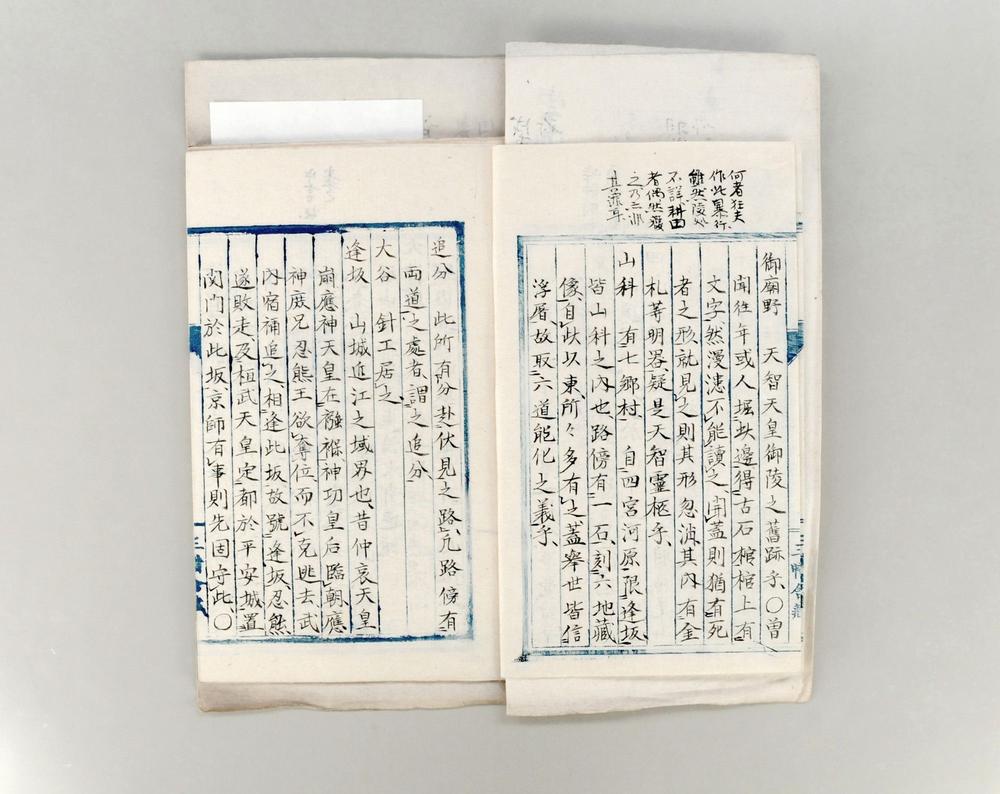 何者狂夫
作此暴行
雖然陵処
不詳耕田
者偶然發
之乃亦非
其罪耳
御廟野　天智天皇御陵之舊跡乎〇曽
聞往年或人堀坎邊得古石棺棺上有
文字然漫漶不能讀之開蓋則猶有死
者之形就見之則其形忽消其内有金
札等明器疑是天智靈柩乎
山科　有七郷村　自四宮河原限逢坂
皆山科之内也路傍有一石刻六地藏
像自此以東所々多有之蓋舉世皆信
浮屠故取六道能化之義乎
追分　此所有分赴伏見之路凢路傍有
両道之處者謂之追分
大谷　針工居之
逢坂　山城近江之域界也昔仲哀天皇
崩應神天皇在襁褓神功皇后臨朝應
神庶兄忍熊王欲奪位而不克逃去武
内宿祢追之相逢此坂故號逢坂忍熊
遂敗走及桓武天皇定都於平安城置
関門於此坂京師有事則先固守此〇